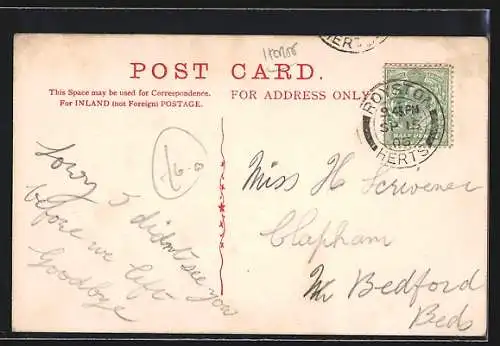 HERTS
POST CARD.
This Space may be used for Correspondence.
For INLAND (not Foreign) POSTAGE.
FOR ADDRESS ONLY
ROYSTON
9.45 PM
SP 15
HERTS
Sorry I didn't see you
before we left
Goodbye
Miss H Scrivener
Clapham
Nr Bedford
Beds